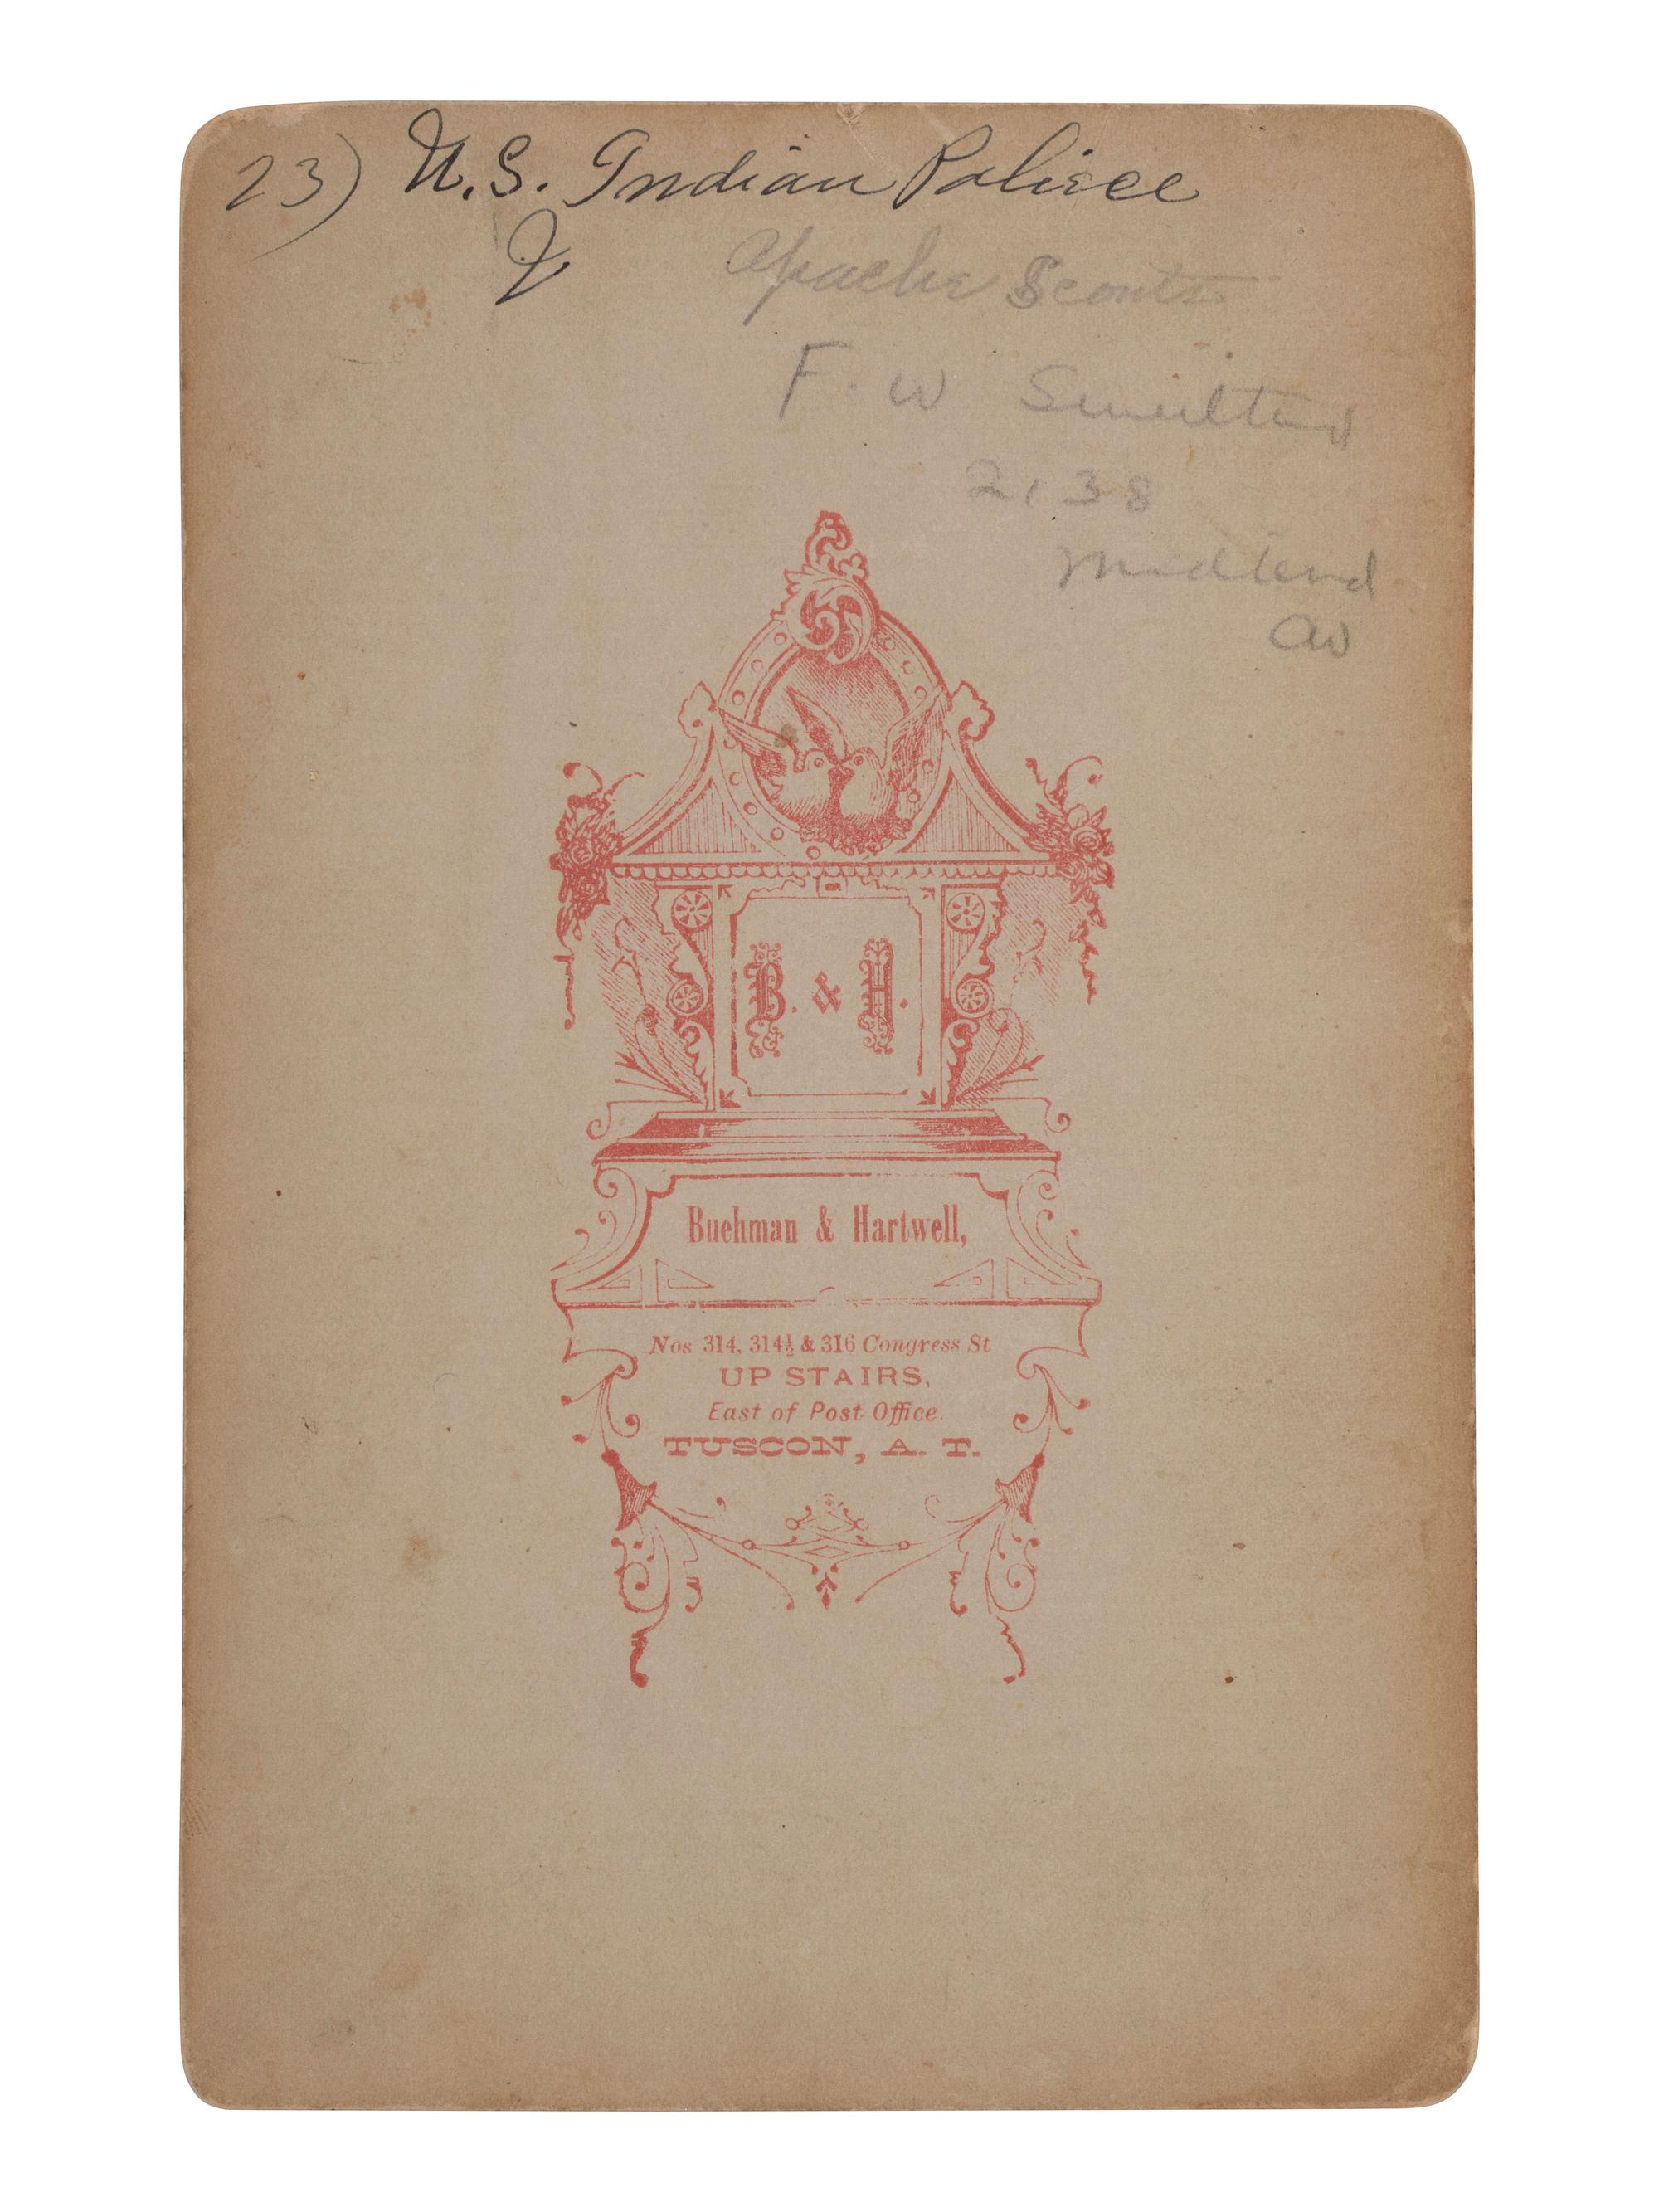 23) U. S. Indian Police
Apache Scouts
F. W
2138
Av
B. & H.
Buehman & Hartwell,
Nos 314, 314½ & 316 Congress St
UP STAIRS,
East of Post Office.
TUSCON, A. T.